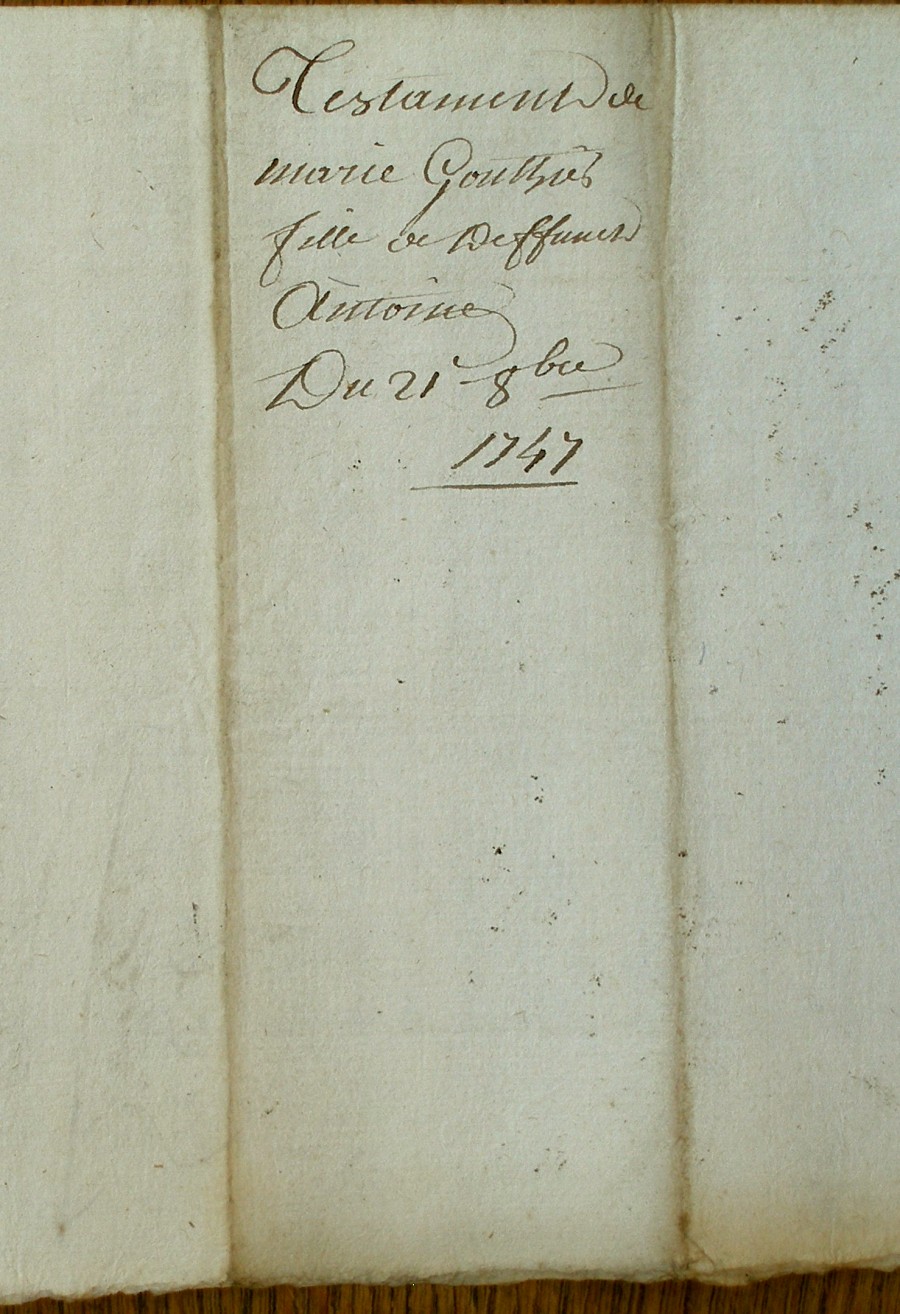 Testament de
marie Gonthiés
fille de Deffunct
Antoine
Du 21e 8bre
1747